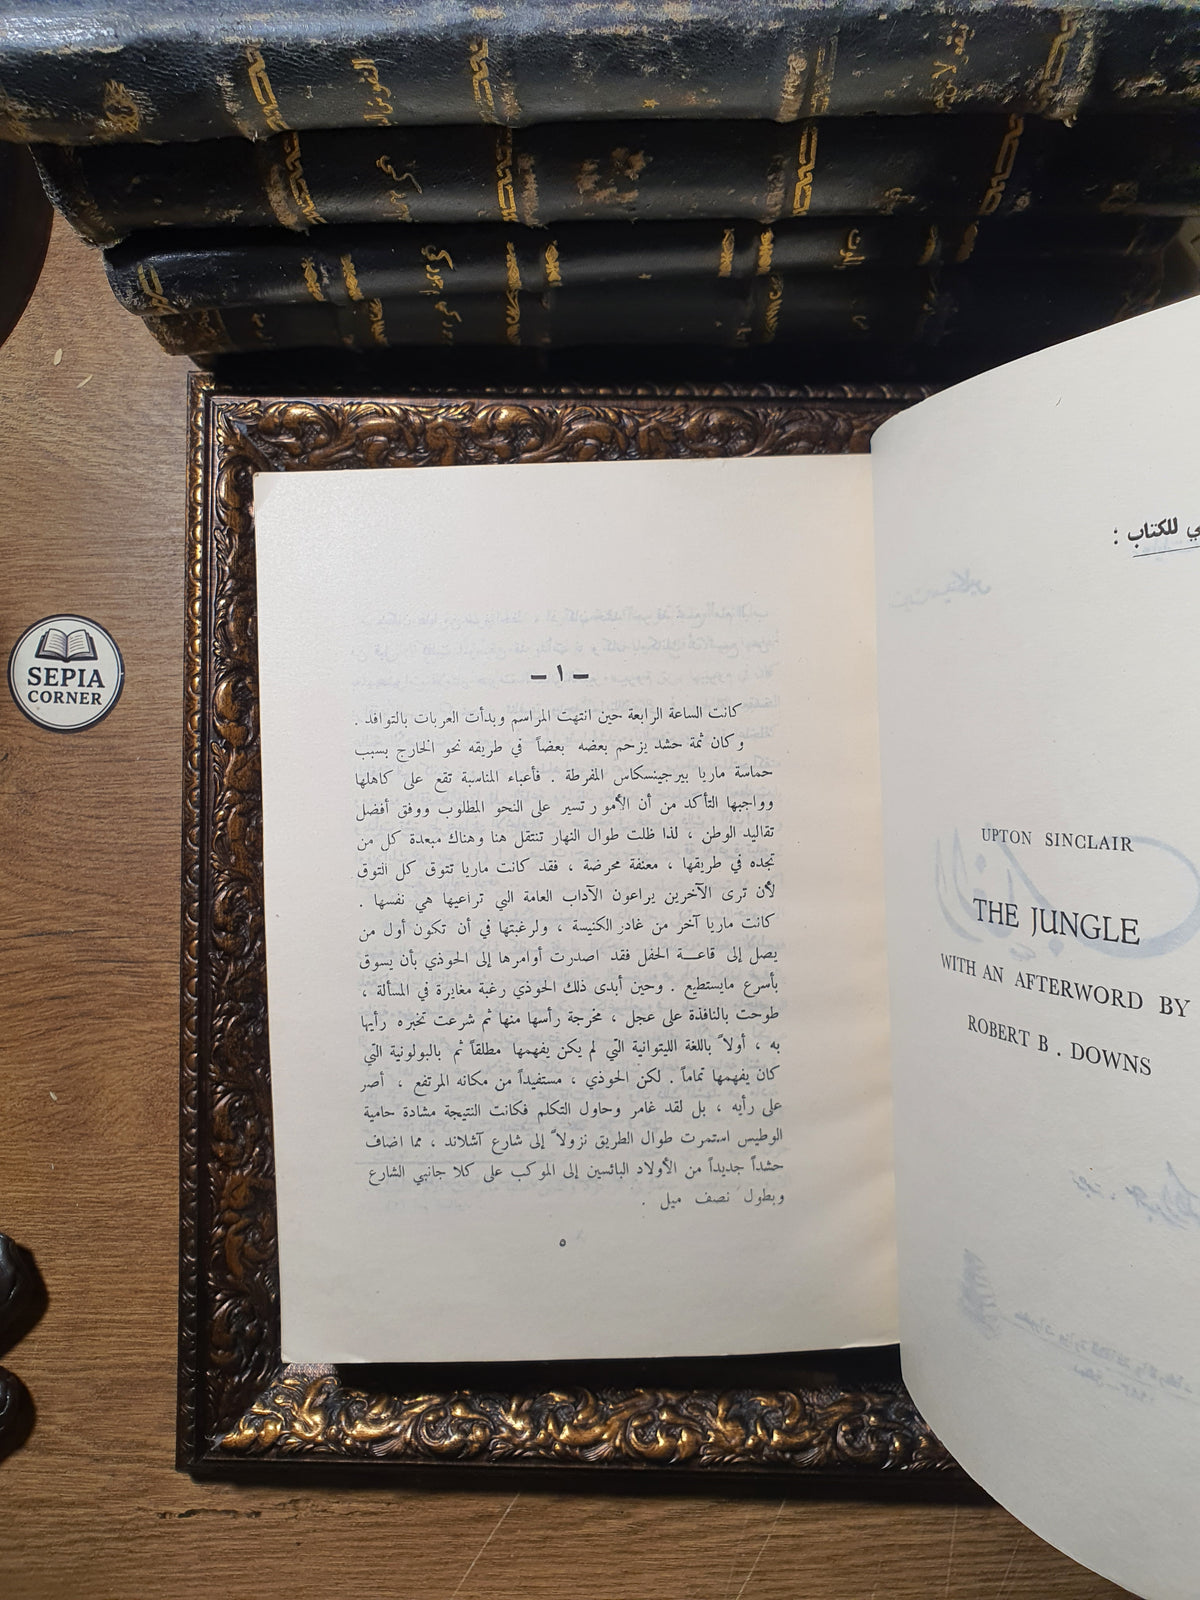 SEPIA
CORNER
ـ ١ ـ
كانت الساعة الرابعة حين انتهت المراسم وبدأت العربات بالتوافد .
وكان ثمة حشد يزحم بعضه بعضاً في طريقه نحو الخارج بسبب
حماسة ماريا بيرجينسكاس المفرطة . فأعباء المناسبة تقع على كاهلها
وواجبها التأكد من أن الأمور تسير على النحو المطلوب ووفق أفضل
تقاليد الوطن ، لذا ظلت طوال النهار تنتقل هنا وهناك مبعدة كل من
تجده في طريقها ، معنفة محرضة ، فقد كانت ماريا تتوق كل التوق
لأن ترى الآخرين يراعون الآداب العامة التي تراعيها هي نفسها .
كانت ماريا آخر من غادر الكنيسة ، ولرغبتها في أن تكون أول من
يصل إلى قاعة الحفل فقد اصدرت أوامرها إلى الحوذي بأن يسوق
بأسرع مايستطيع . وحين أبدى ذلك الحوذي رغبة مغايرة في المسألة ،
طوحت بالنافذة على عجل ، مخرجة رأسها منها ثم شرعت تخبره رأيها
به ، أولاً باللغة الليتوانية التي لم يكن يفهمها مطلقاً ثم بالبولونية التي
كان يفهمها تماماً . لكن الحوذي ، مستفيداً من مكانه المرتفع ، أصر
على رأيه ، بل لقد غامر وحاول التكلم فكانت النتيجة مشادة حامية
الوطيس استمرت طوال الطريق نزولاً إلى شارع آشلاند ، مما اضاف
حشداً جديداً من الأولاد البائسين إلى الموكب على كلا جانبي الشارع
وبطول نصف ميل .
٥
للكتاب :
UPTON SINCLAIR
THE JUNGLE
WITH AN AFTERWORD BY
ROBERT B . DOWNS